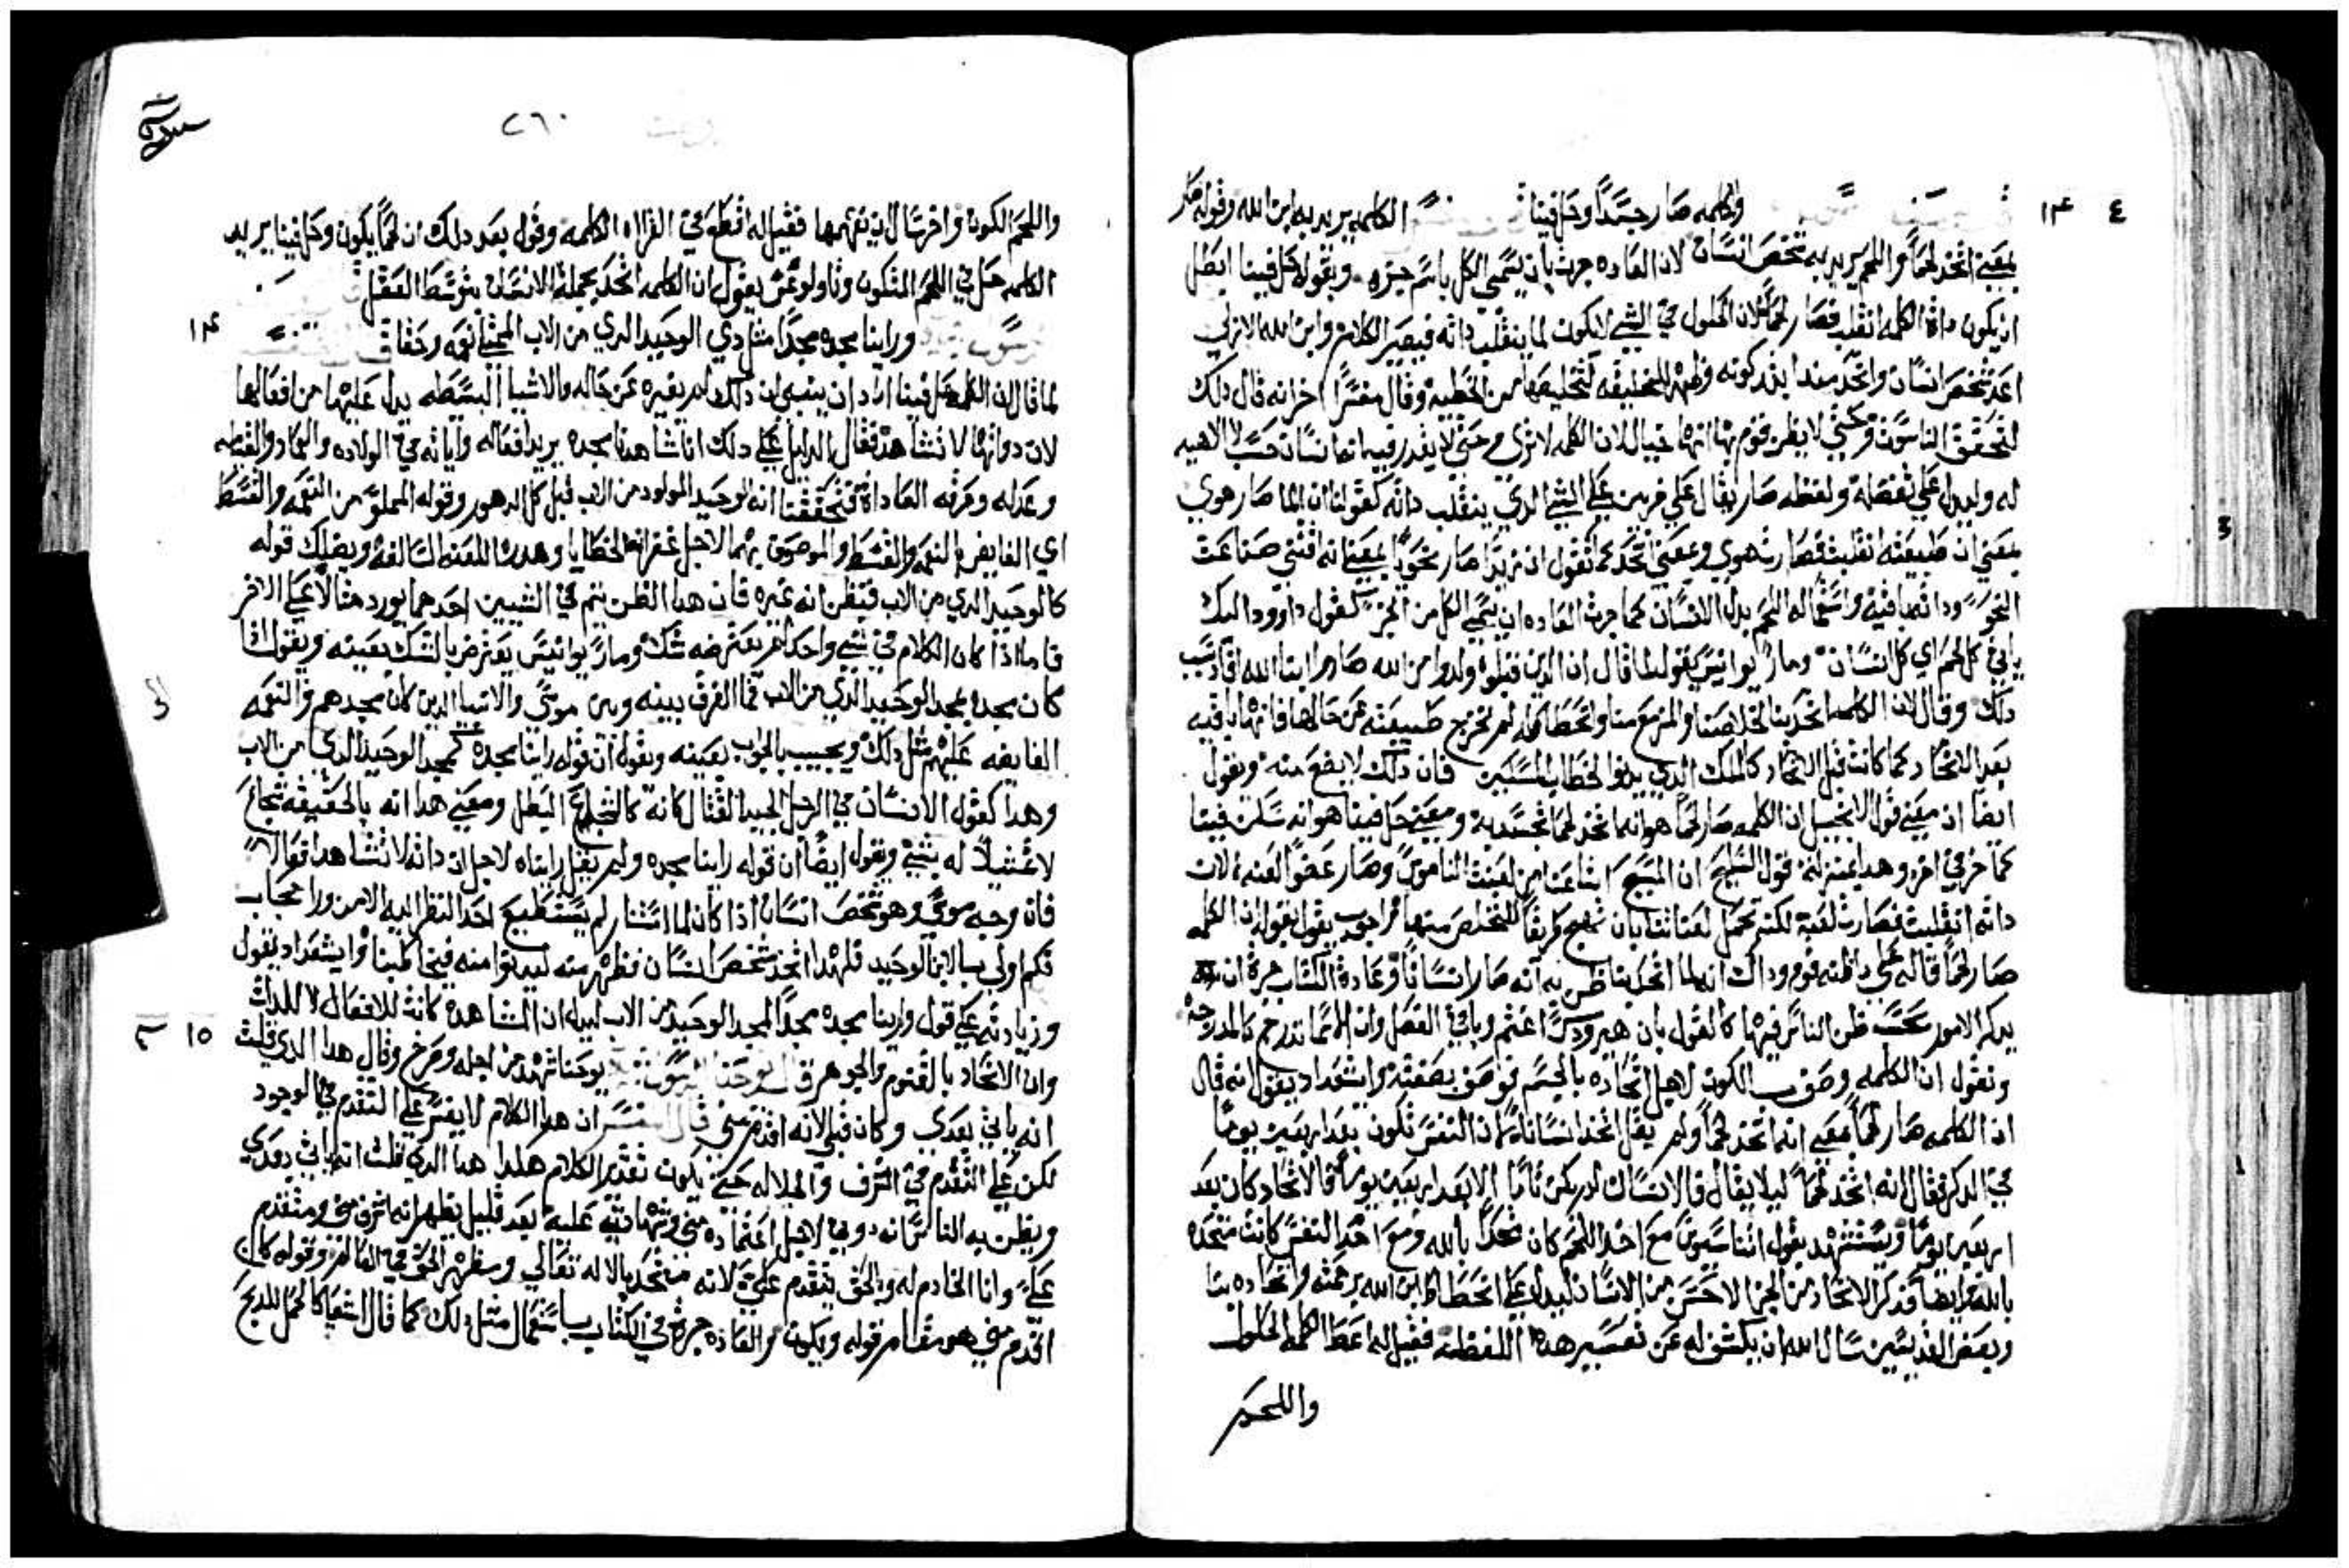 ١٤ ٤
والكلمه صار جسدًا وحل فينا الكلمه يريد به ابن الله وقوله صار
بمعني اتخد لحمًا واللحم يريد به شخص انسان لان العاده جرت بان يسمي الكل باسم جزه وبقوله حل فينا ابطل
ان يكون داة الكلمه انقلب فصار لحمًا لان الحلول في الشي لا يكون لما ينقلب داته فيصير الكلام وابن الله الازلي
اخد شخص انسان واتحد مندا بدو كونه وظهر للخليقه لتخليصها من الخطيه وقال مفسرًا اخر انه قال دلك
لتحقق الناسوت وحتي لا يظن قوم بها انها خيال لان الكلمه لا تري وحتي لا يقدر فيه انه انسان حسب لا الاهيه
له وليدل علي تفضله ولفظه صار يقال علي ضربين علي الشي الدي ينقلب داته كقولنا ان الما صار هوي
بمعني ان طبيعته انقلبت فصارت هوي وبمعني اتحد كما نقول ان زيدًا صار نحويًا بمعني انه اقتني صناعت
النحو وداته باقيه واستعماله اللحم بدل الانسان كما جرت العاده ان يسمي الكل من الجز كقول داوود اليك
ياتي كل لحم اي كل انسان ومار يوانيس يقول لما قال ان الدين قبلوه ولدوا من الله صاروا ابنا الله افاد سبب
دلك وقال لان الكلمه اتحد بنا لخلاصنا والرفع منا وانحطاطه لم تخرج طبيعته عن حالها فانها باقيه
بعد الاتحاد كما كانت قبل الاتحاد كالملك الدي يدنوا لخطاب المسكين فان دلك لا يضع منه ونقول
ايضًا ان معني قول الانجيل ان الكلمه صار لحمًا هو انه اتخد لحمًا تجسد به ومعني حل فينا هو انه سكن فينا
كما خبر في اخره وهدا بمنزلة قول السليح ان المسيح ابتاعنا من لعنت الناموس وصار عوضًا لعنه لان
داته انقلبت فصارت لعنة لكنه تحمل لعناتنا بان نهج طريقًا للتخلص منها
صار لحمًا قاله علي ما ظنه قوم وداك انه لما اتحد بنا ظن به انه صار انسانًا وعادة الكتاب جرة ان
يدكر الامور بحسب ظن الناس فيها كالقول بان هيرودس اغتم وباتي الفصل وان السما تدرج كالمدرجه
ونقول ان الكلمه وصف بالكون لاجل اتحاده بالجسم فوصف بصفته وايشعداد يقول انه قال
ان الكلمه صار لحمًا بمعني انه اتخد لحمًا ولم يقل اتخد انسانًا لان النفس تكون بعد اربعين يومًا
في الدكر فقال انه اتخد لحمًا ليلا يقال فالانسان لم يكن تامًا الا بعد اربعين يومًا فالاتحاد كان بعد
اربعين يومًا ويستشهد بقول اثناسيوس مع اخد اللحم كان متحدًا بالله ومع اخد النفس كانت متحده
بالله وايضًا فدكر الاتحاد من الجز الاخس من الانسان ليدل علي انحطاط ابن الله برحمته واتحاده بنا
وبعض القديسين سال الله ان يكشف له عن تفسير هده اللفظه فقيل له اعط الكلمه الحلول
واللحم
٢٦٠
واللحم الكون واخر سال ان يتفهمها فقيل له اقطع في القراه الكلمه وقول بعد دلك ان لحمًا يكون وحل فينا يريد
الكلمه حل في اللحم المتكون وتاولوغس يقول ان الكلمه اتحد بجملة الانسان بتوسط العقل
١٤
وراينا مجده مجدًا مثل دي الوحيد الدي من الاب الممتلي نعمه وحقًا
لما قال ان الكلمه حل فينا اراد ان ينبي ان دلك لم يغيره عن حاله والاشيا البسيطه يدل عليها من افعالها
لان دواتها لا تشاهد فقال الدليل علي دلك انا شاهدنا مجده يريد افعاله واياته في الولاده والعماد والقيامه
وعدله وخرقه العاداة فتحققنا انه الوحيد المولود من الاب قبل كل الدهور وقوله المملو من النعمه والقسط
اي الفايض بالنعمه والقسط والموصوف بهما لاجل غفرانه الخطايا وهدمه اللعنه السالفه ويضلك قوله
كالوحيد الدي من الاب فتظن انه غيره فان هدا الظن يتم في الشيين احدهما يورد مثالًا علي الاخر
فاما ادا كان الكلام في شي واحد لم يعترضه شك ومار يوانيس يعترض بالشك بعينه ويقول ادا
كان مجده مجد الوحيد الدي من الاب فما الفرق بينه وبين موسي والانبيا الدين كان مجدهم والنعمه
الفايضه عليهم مثل دلك ويجيب بالجواب بعينه ويقول ان قوله راينا مجده كمجد الوحيد الدي من الاب
وهدا كقول الانسان في الرجل الجيد القتال كانه كالشجاع البطل ومعني هدا انه بالحقيقه شجاع
لا تمثيلًا له بشي ويقول ايضًا ان قوله راينا مجده ولم يقل رايناه لاجل ان داته لا تشاهد افعاله
فان وجه موسي وهو شخص انسان ادا كان لما استنار لم يستطيع احد النظر اليه الا من ورا حجاب
فكم اولي بالابن الوحيد فلهدا اتخد شخص انسان فظهر منه ليدنوا منه فيخاطبنا وايشعداد يقول
وزيادته علي قول وراينا مجده مجدًا كمجد الوحيد من الاب ليبين ان المشاهده كانت للافعال لا للدات
١٥
وان الاتحاد بالقنوم والجوهر يوحنا شهد من اجله وصرخ وقال هدا الدي قلت
انه ياتي بعدي وكان قبلي لانه اقدم مني قال المفسر ان هدا الكلام لا يفسر علي التقدم في الوجود
لكن علي التقدم في الشرف والجلاله حتي يكون تقدير الكلام هكدا هدا الدي قلت انه ياتي بعدي
ويظن به الناس انه دوني لاجل اعتماده مني وشهادتي عليه بعد قليل يظهر انه اشرف مني ومتقدم
علي وانا الخادم له وبالحق يتقدم علي لانه متحد بالاله تعالي وسيظهر الحق في العالم وقوله كان
اقدم مني هو مقام قوله ويكون والعاده جرة في الكتاب باستعمال مثل دلك كما قال شعيا كالحمل للدبح